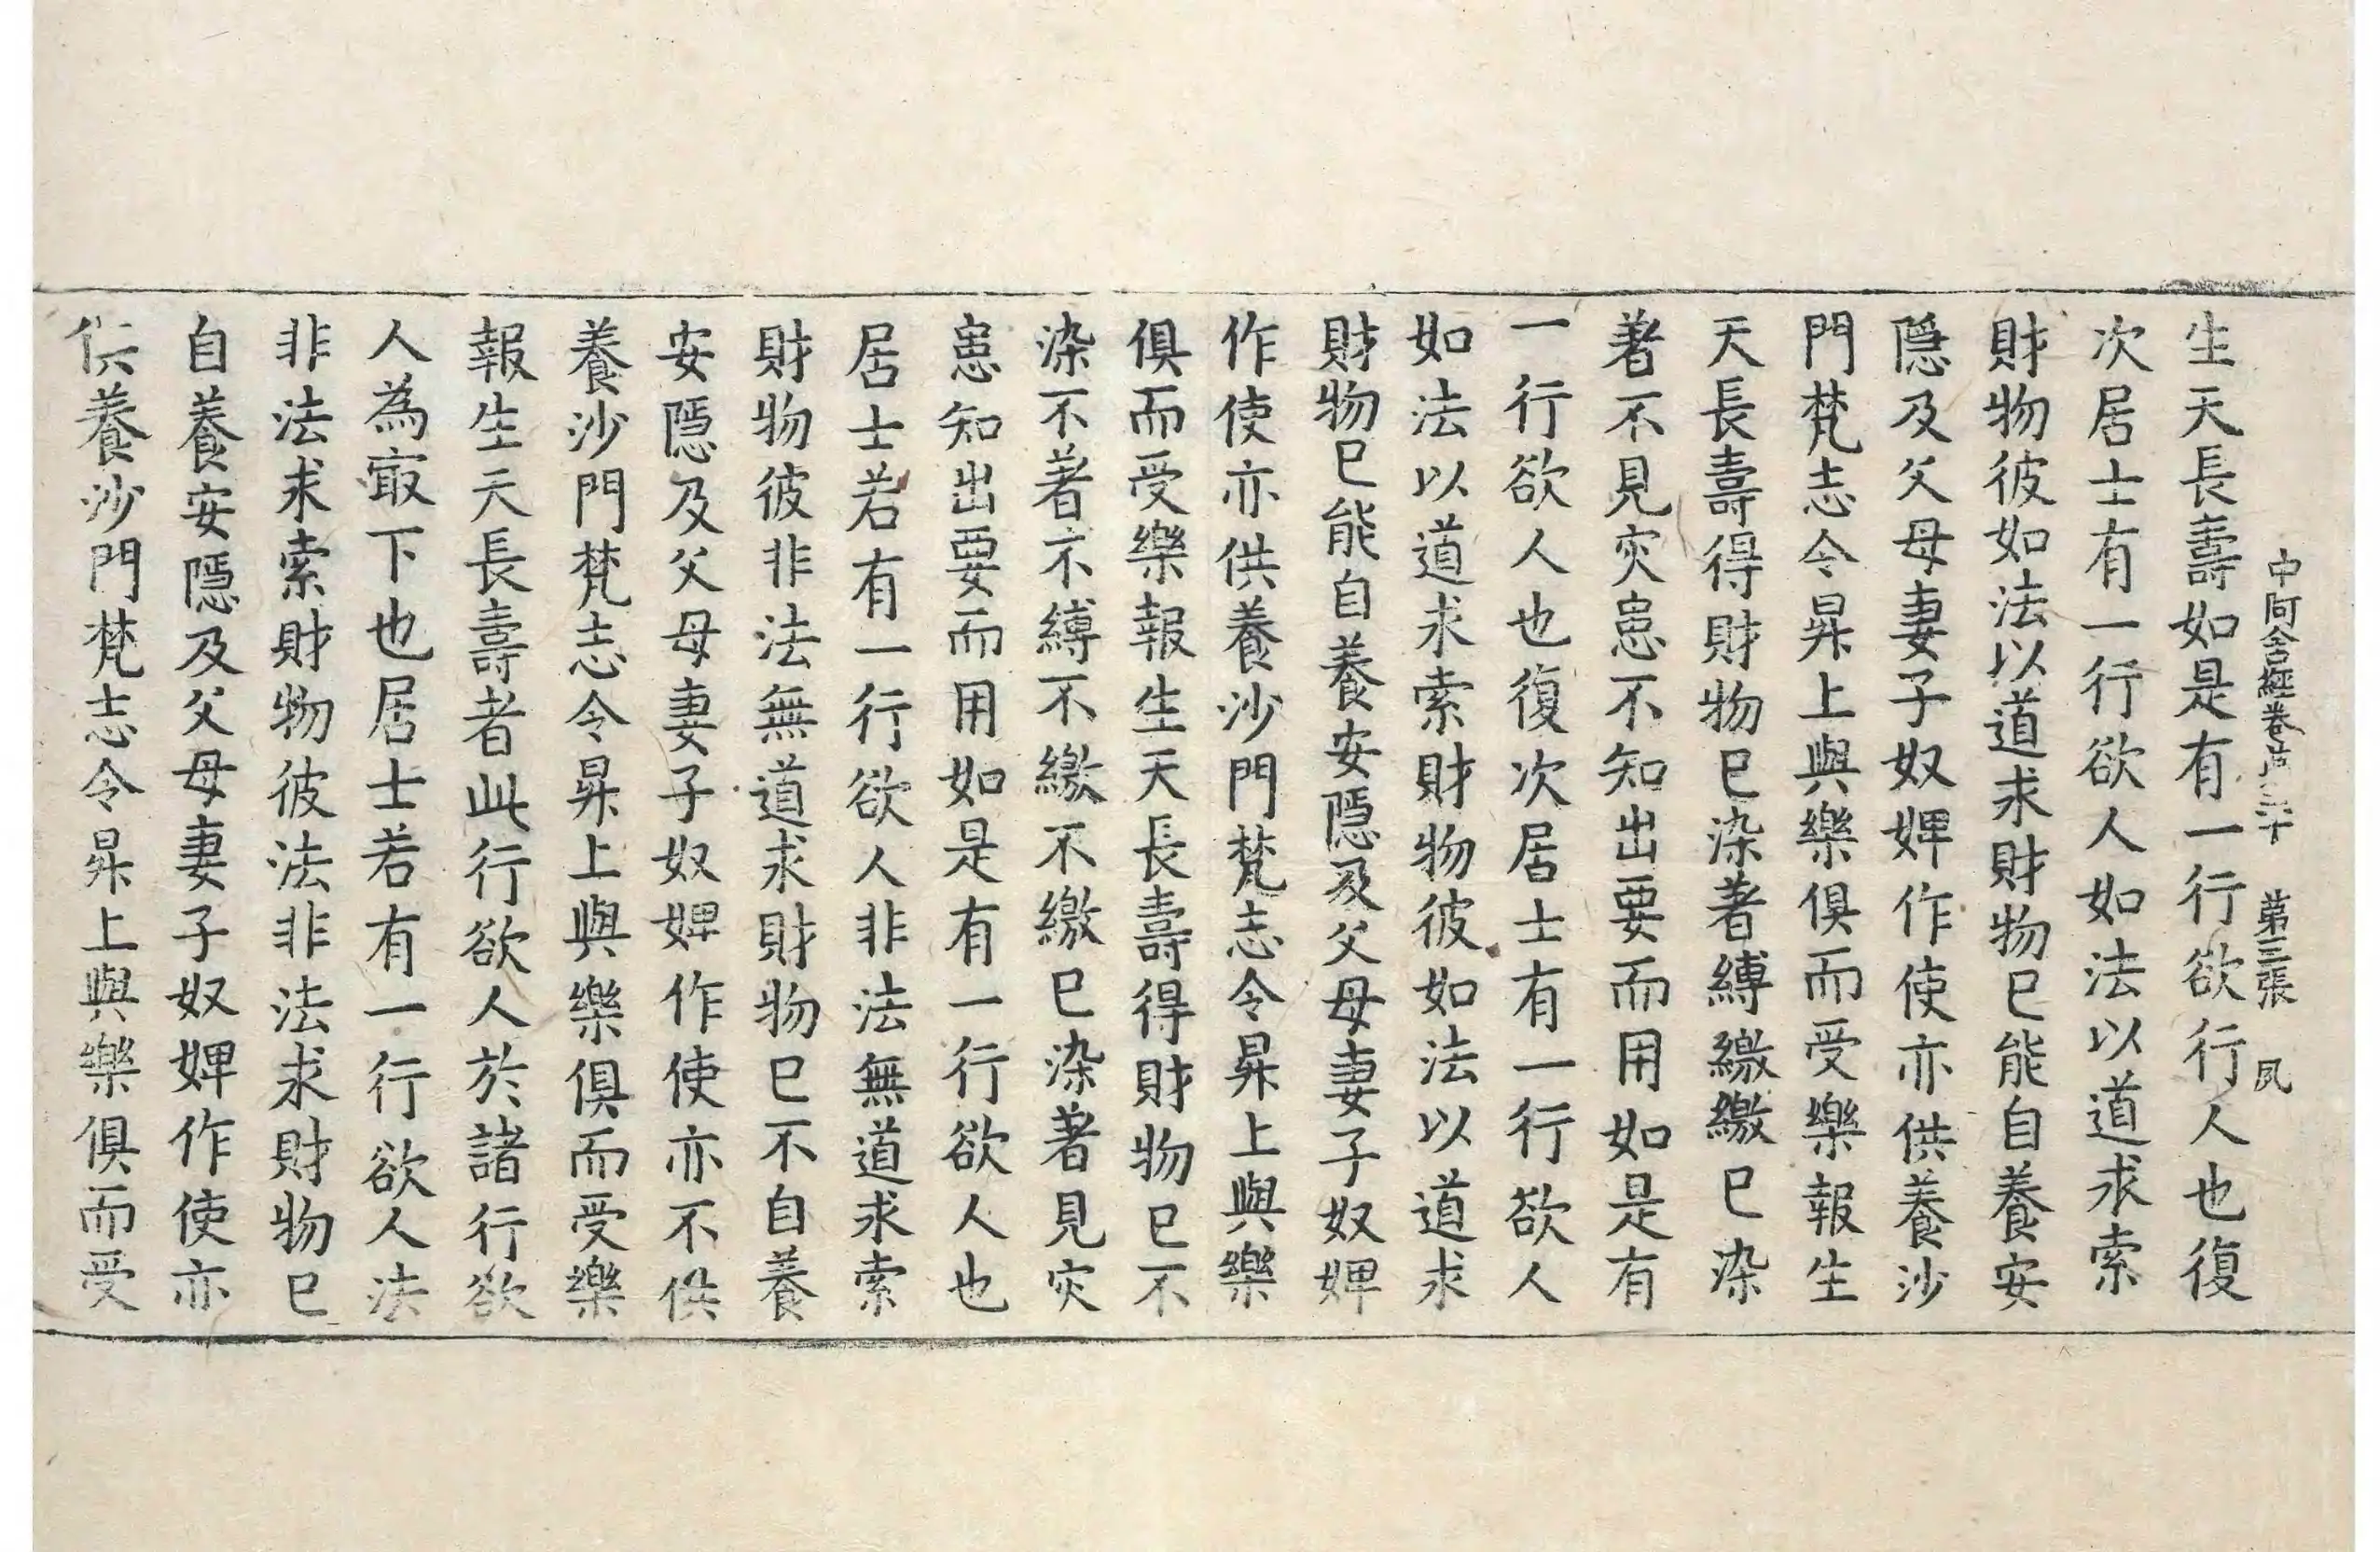 中阿含經卷第三十 第三張 夙
生天長壽如是有一行欲行人也復
次居士有一行欲人如法以道求索
財物彼如法以道求財物已能自養安
隱及父母妻子奴婢作使亦供養沙
門梵志令昇上與樂俱而受樂報生
天長壽得財物已染著縛繳繳已染
著不見灾患不知出要而用如是有
一行欲人也復次居士有一行欲人
如法以道求索財物彼如法以道求
財物已能自養安隱及父母妻子奴婢
作使亦供養沙門梵志令昇上與樂
俱而受樂報生天長壽得財物已不
染不著不縛不繳不繳已染著見灾
患知出要而用如是有一行欲人也
居士若有一行欲人非法無道求索
財物彼非法無道求財物已不自養
安隱及父母妻子奴婢作使亦不供
養沙門梵志令昇上與樂俱而受樂
報生天長壽者此行欲人於諸行欲
人為冣下也居士若有一行欲人法
非法求索財物彼法非法求財物已
自養安隱及父母妻子奴婢作使亦
供養沙門梵志令昇上與樂俱而受